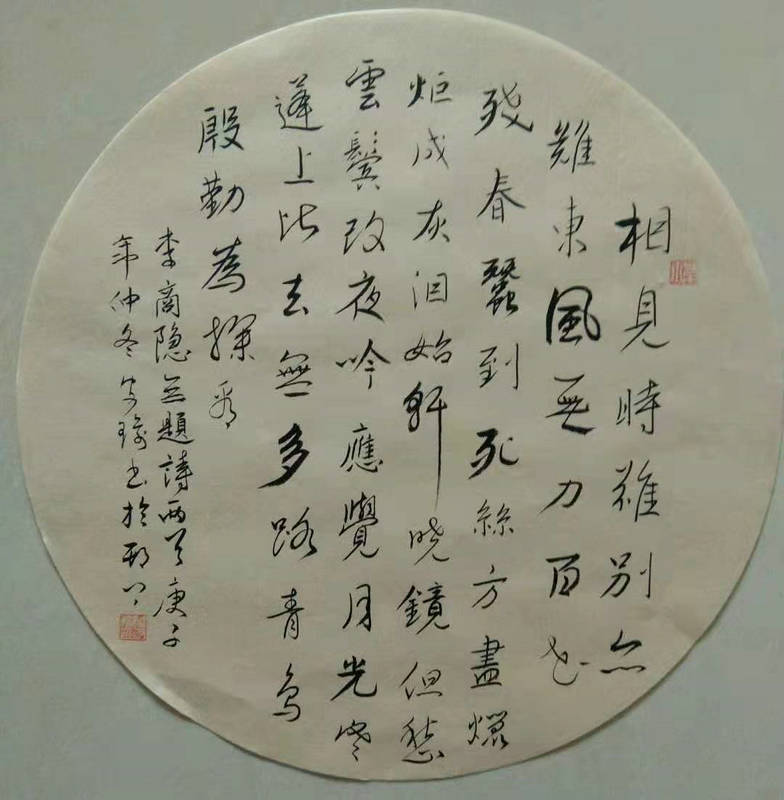 相見時難別亦
難東風無力百花
殘春蠶到死絲方盡蠟
炬成灰泪始乾曉鏡但愁
雲鬢改夜吟應覺月光寒
蓬山此去無多路青鳥
殷勤為探看
李商隐無題詩两首庚子
年仲冬书於邢